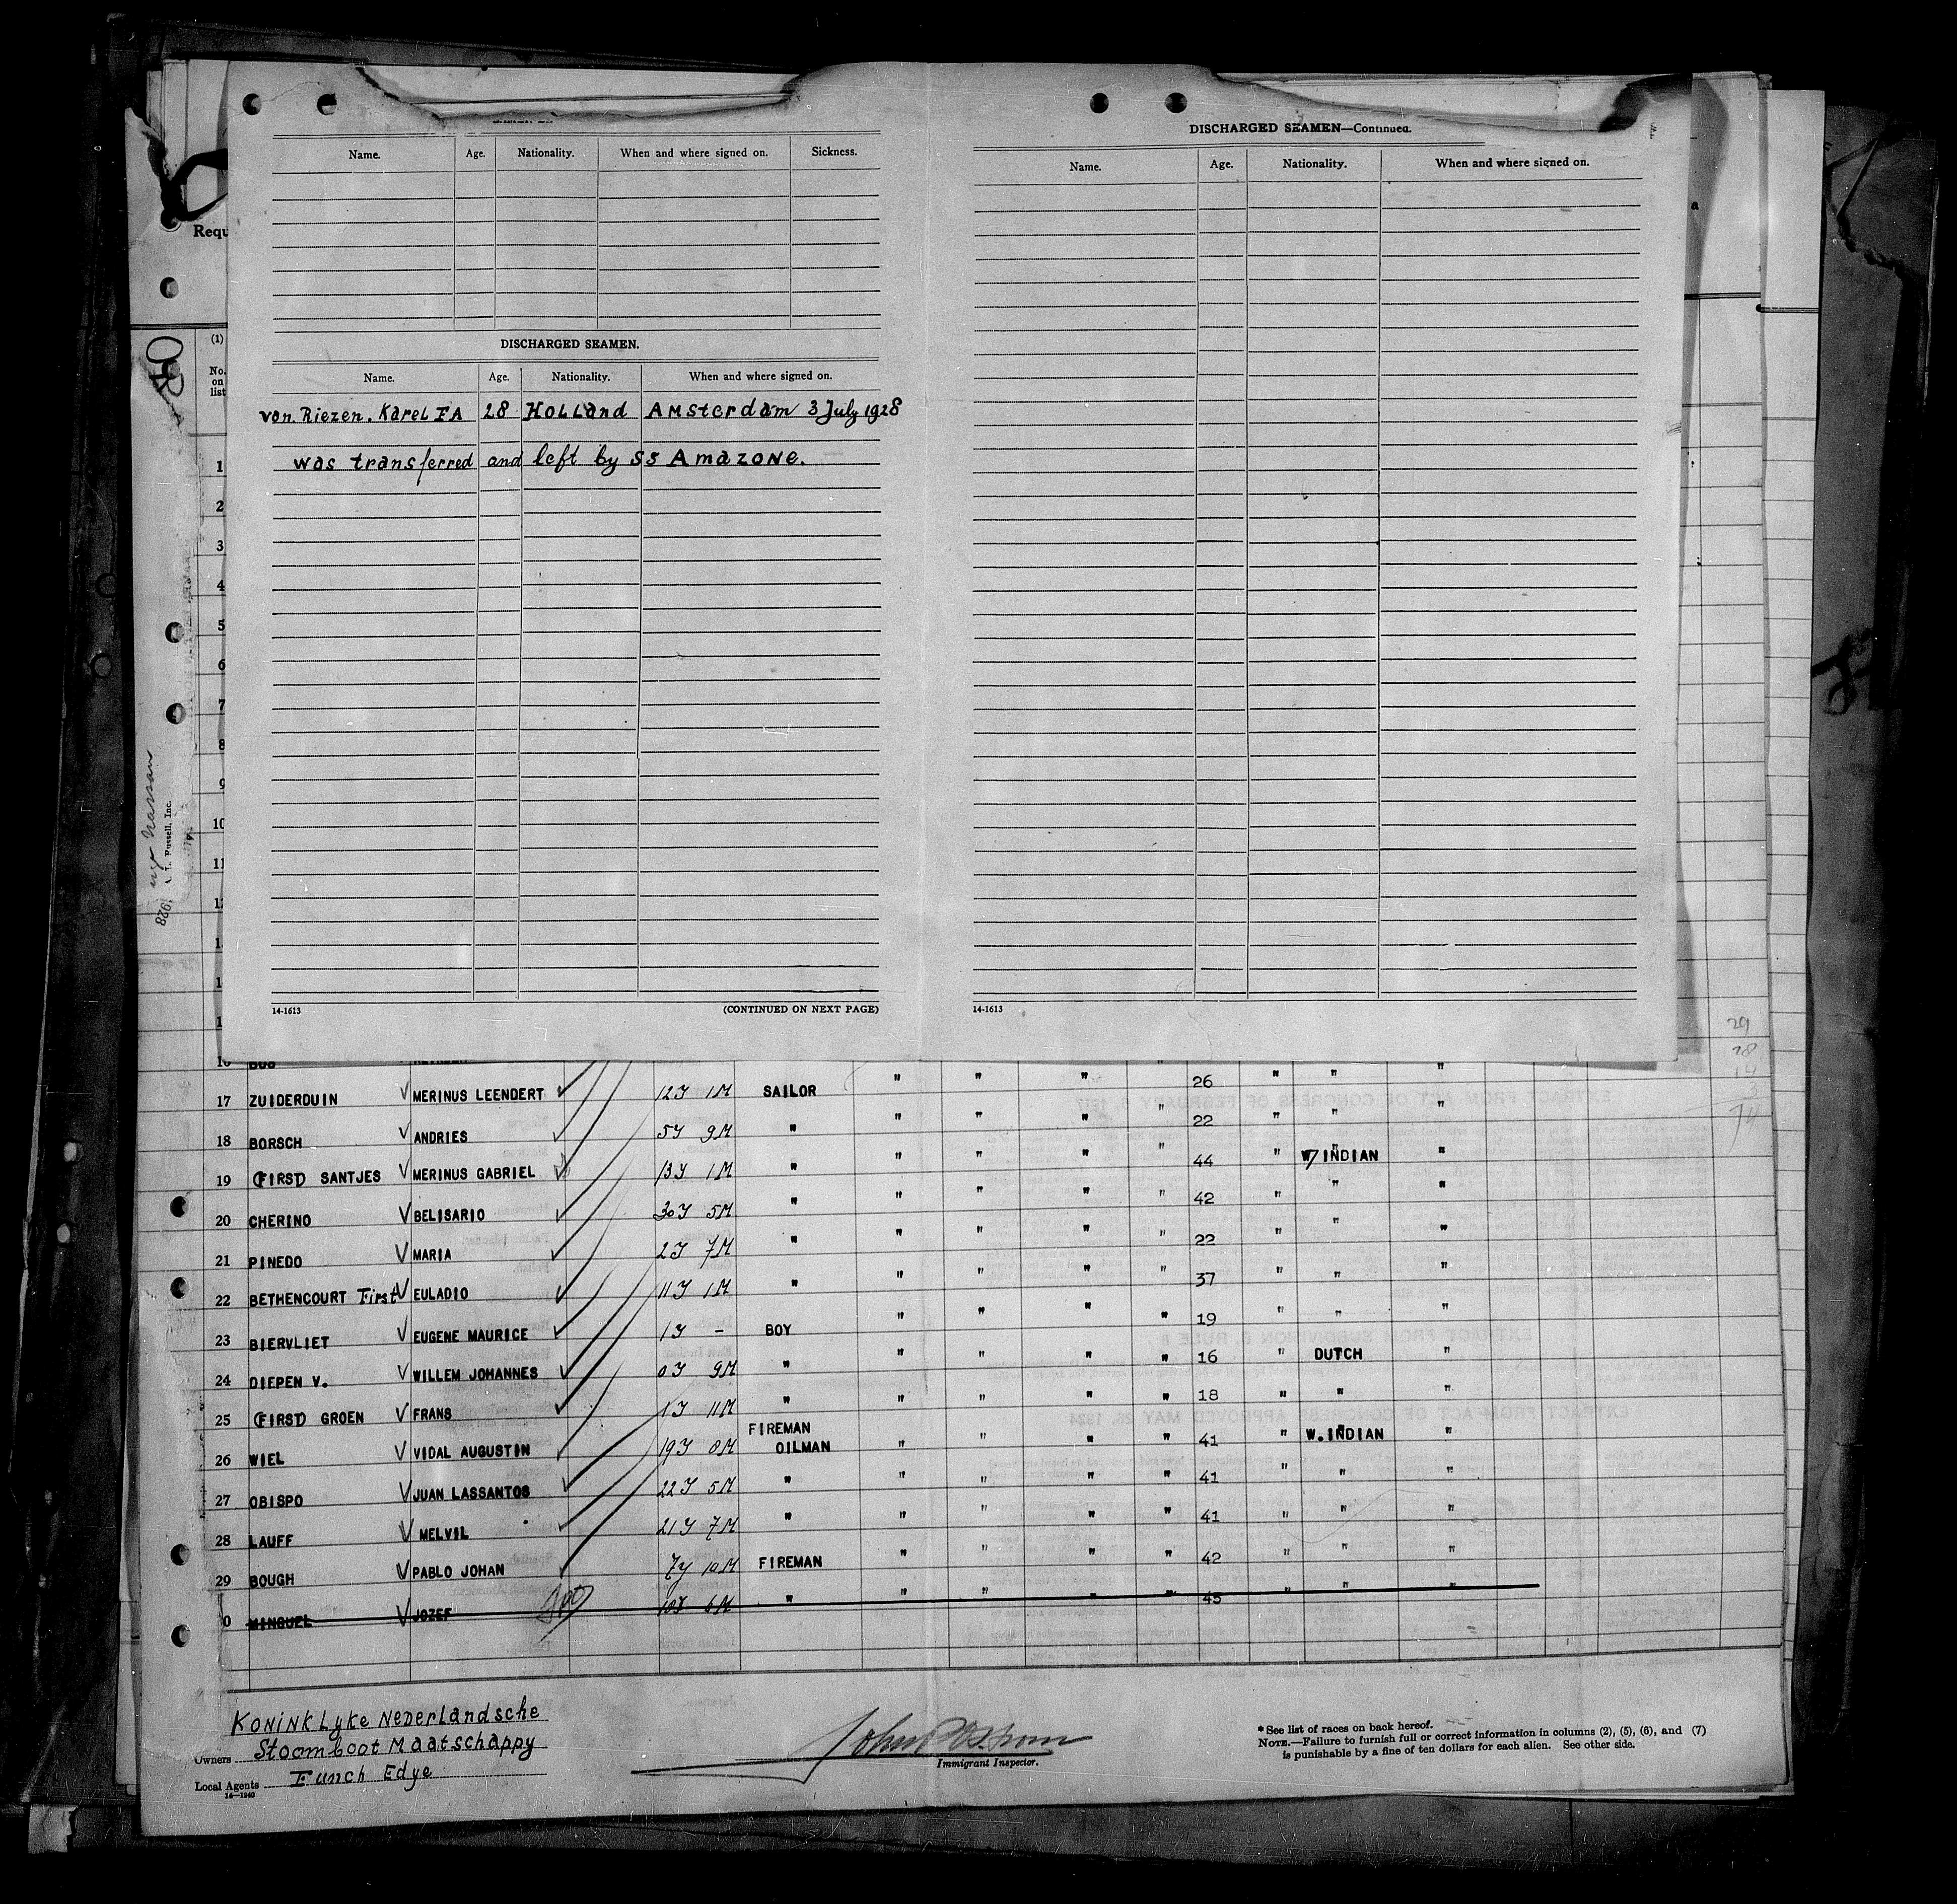 Name. Age. Nationality. When and where signed on. Sickness.
DISCHARGED SEAMEN.
Name. Age. Nationality. When and where signed on.
von Riezen. Karel FA 28 Holland Amsterdam 3 July 1928
was transferred and left by SS Amazone.
14-1613 (CONTINUED ON NEXT PAGE)
DISCHARGED SEAMEN—Continued.
Name. Age. Nationality. When and where signed on.
14-1613
Requ
(1)
No. on list
1
2
3
4
5
6
7
8
9
10
11
29
28
14
3
74
17 ZUIDERDUIN MERINUS LEENDERT 12Y 1M SAILOR " " " " 26 " " "
18 BORSCH ANDRIES 5Y 9M " " " " " 22 " " "
19 (FIRST) SANTJES MERINUS GABRIEL 13Y 1M " " " " " 44 " W INDIAN "
20 CHERINO BELISARIO 30Y 5M " " " " " 42 " " "
21 PINEDO MARIA 2Y 7M " " " " " 22 " " "
22 BETHENCOURT First EULADIO 11Y 1M " " " " " 37 " " "
23 BIERVLIET EUGENE MAURICE 1Y - BOY " " " " 19 " " "
24 DIEPEN V. WILLEM JOHANNES 0Y 9M " " " " " 16 " DUTCH "
25 (FIRST) GROEN FRANS 1Y 11M " " " " " 18 " " "
26 WIEL VIDAL AUGUSTIN 19Y 8M FIREMAN OILMAN " " " " 41 " W.INDIAN "
27 OBISPO JUAN LASSANTOS 22Y 5M " " " " " 41 " " "
28 LAUFF MELVIL 21Y 7M " " " " " 41 " " "
29 BOUGH PABLO JOHAN 7Y 10M FIREMAN " " " " 42 " " "
0 MINGUEL JOZEF 10Y 6M " " " " " 45 " " "
Owners Koninklyke Nederlandsche
Stoomboot Maatschappy
Local Agents Funch Edye
14—1240
Immigrant Inspector.
* See list of races on back hereof.
NOTE.—Failure to furnish full or correct information in columns (2), (5), (6), and (7)
is punishable by a fine of ten dollars for each alien. See other side.